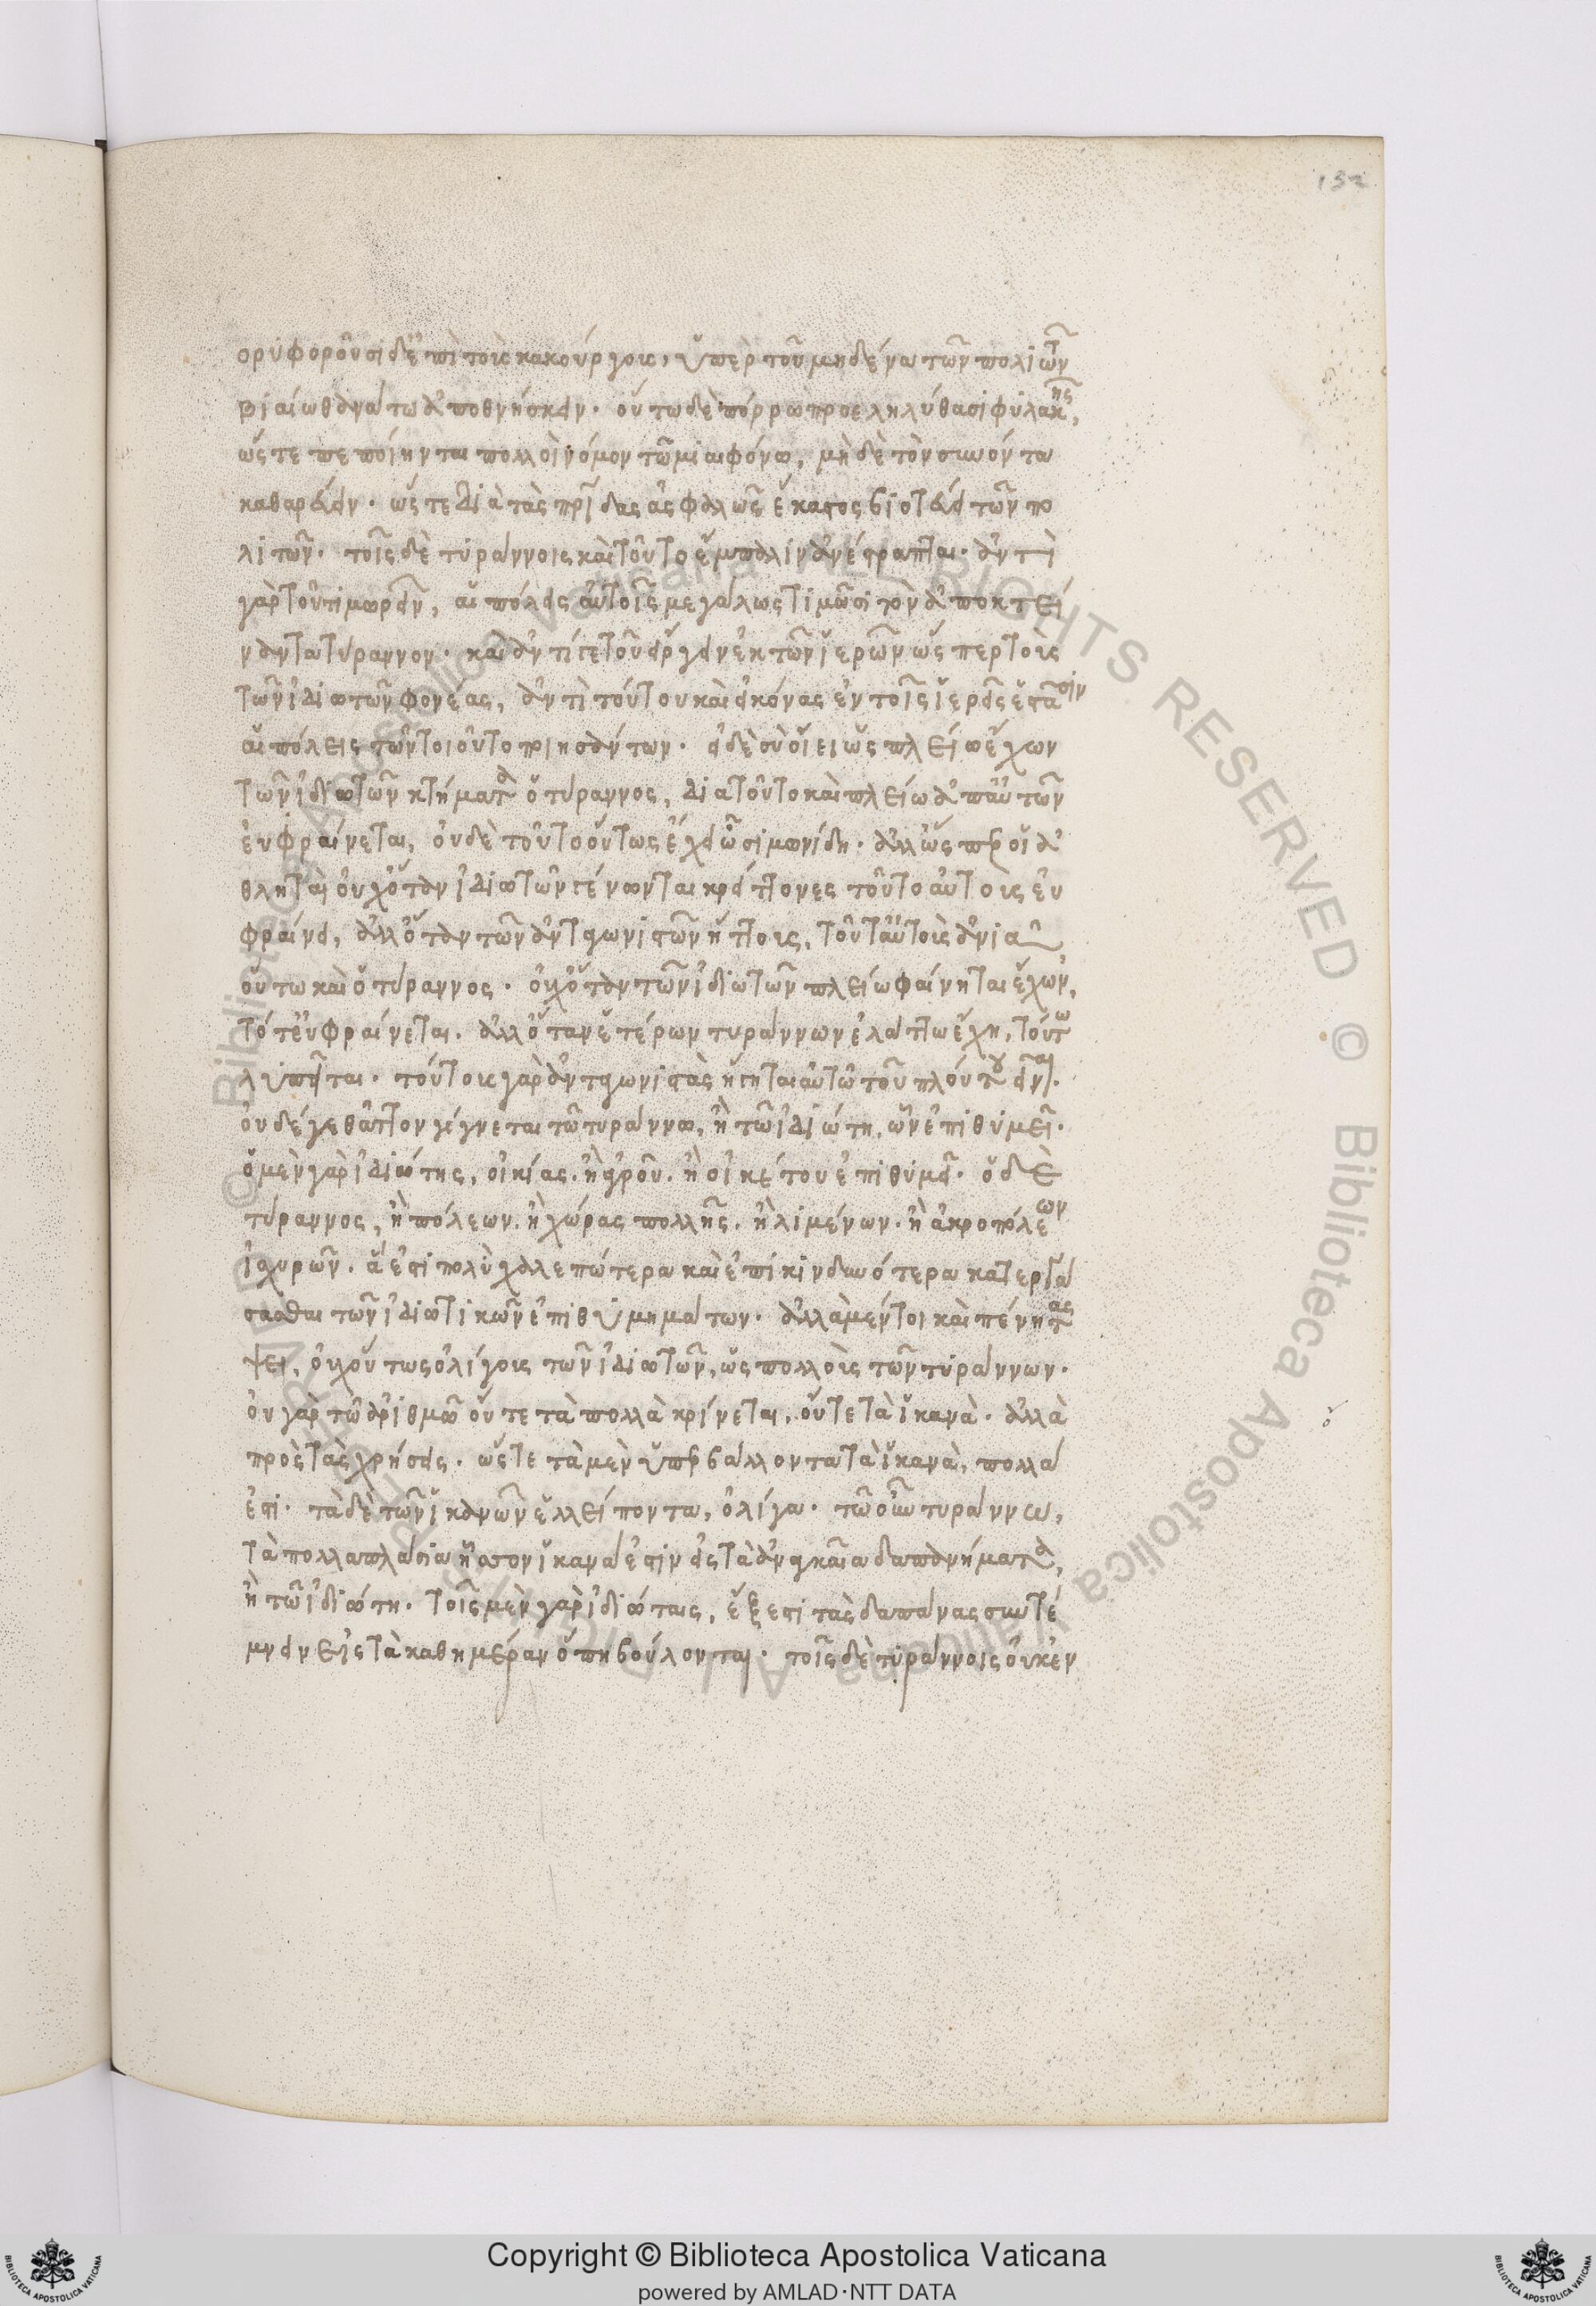 132
ορυφοροῦσι δ' ἐπὶ τοὺς κακούργους, ὑπὲρ τοῦ μηδένα τῶν πολιτῶν
βιαίω θανάτω ἀποθνήσκειν. οὕτω δὲ πόρρω προεληλύθασι φυλακῆς,
ὥστε πεποίηνται πολλοὶ νόμον τῶ μιαιφόνω, μηδὲ τὸν συνόντα
καθαρεύειν. ὥστε διὰ τὰς πρίδας ἀσφαλῶς ἕκαστος βιοτεύει τῶν πο
λιτῶν. τοῖς δὲ τυράννοις καὶ τοῦτο ἔμπαλιν ἀνέστραπται. ἀντὶ
γὰρ τοῦ τιμωρεῖν, αἱ πόλεις αὐτοῖς μεγάλως τιμῶσι τὸν ἀποκτεί
ναντα τύραννον. καὶ ἀντί γε τοῦ εἵργειν ἐκ τῶν ἱερῶν ὥσπερ τοὺς
τῶν ἰδιωτῶν φονέας, ἀντὶ τούτου καὶ εἰκόνας ἐν τοῖς ἱεροῖς ἔστασιν
αἱ πόλεις τῶν τοιοῦτο ποιησάντων. εἰ δὲ σὺ οἴει ὡς πλείω ἔχων
τῶν ἰδιωτῶν κτήματα ὁ τύραννος, διὰ τοῦτο καὶ πλείω ἀπ' αὐτῶν
εὐφραίνεται, οὐδὲ τοῦτο οὕτως ἔχει ὦ σιμωνίδη. ἀλλ' ὥσπερ οἱ ἀ
θληταὶ οὐχ ὅταν ἰδιωτῶν γένωνται κρείττονες τοῦτο αὐτοὺς εὐ
φραίνει, ἀλλ' ὅταν τῶν ἀνταγωνιστῶν ἥττους, τοῦτ' αὐτοὺς ἀνιᾶ,
οὕτω καὶ ὁ τύραννος. οὐχ ὅταν τῶν ἰδιωτῶν πλείω φαίνηται ἔχων,
τότ' εὐφραίνεται. ἀλλ' ὅταν ἑτέρων τυράννων ἐλάττω ἔχη, τούτω
λυπεῖται. τούτους γὰρ ἀνταγωνιστὰς ἡγεῖται αὐτῶ τοῦ πλούτου εἶναι.
οὐδέ γε θᾶττον γίγνεται τῶ τυράννω, ἢ τῶ ἰδιώτη, ὧν ἐπιθυμεῖ.
ὁ μὲν γὰρ ἰδιώτης, οἰκίας. ἢ ἀγροῦ. ἢ οἰκέτου ἐπιθυμεῖ. ὁ δὲ
τύραννος, ἢ πόλεων. ἢ χώρας πολλῆς. ἢ λιμένων. ἢ ἀκροπόλεων
ἰσχυρῶν. ἅ ἐστι πολὺ χαλεπώτερα καὶ ἐπικινδυνότερα κατεργά
σασθαι τῶν ἰδιωτικῶν ἐπιθυμημάτων. ἀλλὰ μέντοι καὶ πένητας
ψει, οὐχ οὕτως ὀλίγους τῶν ἰδιωτῶν, ὡς πολλοὺς τῶν τυράννων.
οὐ γὰρ τῶ ἀριθμῶ οὔτε τὰ πολλὰ κρίνεται, οὔτε τὰ ἱκανὰ. ἀλλὰ
πρὸς τὰς χρήσεις. ὥστε τὰ μὲν ὑπερβάλλοντα τὰ ἱκανὰ, πολλά
ἐστι. τὰ δὲ τῶν ἱκανῶν ἐλλείποντα, ὀλίγα. τῶ οὖν τυράννω,
τὰ πολλαπλάσια ἧσσον ἱκανά ἐστιν εἰς τὰ ἀναγκαῖα δαπανήματα,
ἢ τῶ ἰδιώτη. τοῖς μὲν γὰρ ἰδιώταις, ἔξεστι τὰς δαπάνας συντέ
μνειν εἰς τὰ καθημέραν ὅπη βούλονται. τοῖς δὲ τυράννοις οὐκ ἐν
Copyright © Biblioteca Apostolica Vaticana
powered by AMLAD·NTT DATA